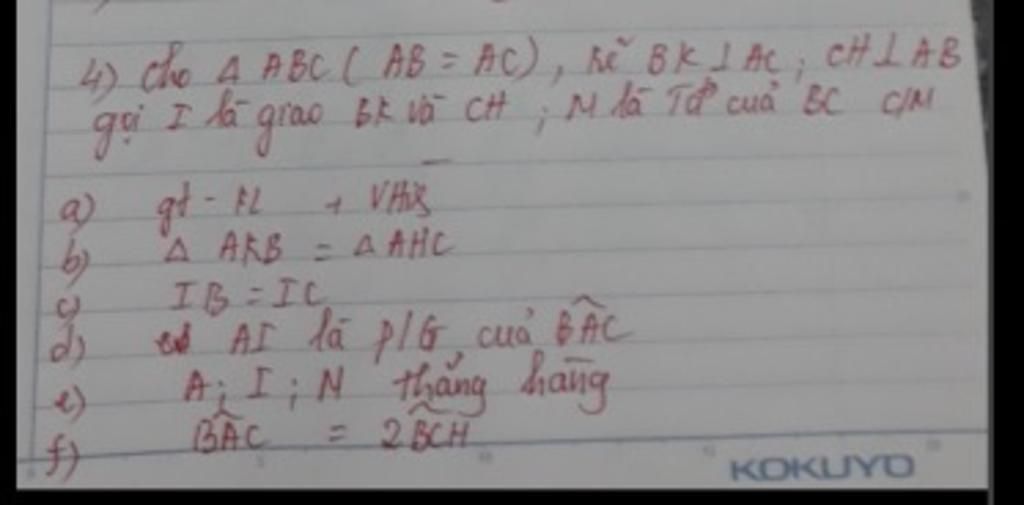 4) Cho Δ ABC ( AB = AC ) , kẻ BK ⊥ AC ; CH ⊥ AB
gọi I là giao BK và CH ; N là Tđ² của BC C/M
a) gt - KL + VHìn
b) Δ AKB = Δ AHC
c) IB = IC
d) AI là p/G của BAC
e) A ; I ; N thẳng hàng
f) BAC = 2 BCH
KOKUYO